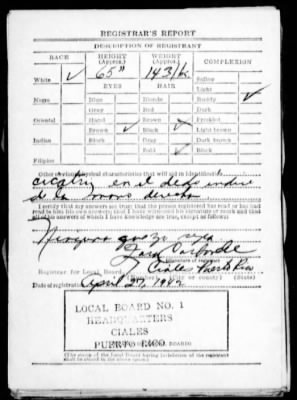 REGISTRAR'S REPORT
DESCRIPTION OF REGISTRANT
RACE HEIGHT (Approx.) WEIGHT (Approx.) COMPLEXION
White ✓ 65" 143 lb. Sallow
EYES HAIR Light
Negro Blue Blonde Ruddy ✓
Gray Red Dark
Oriental Hazel Brown Freckled
Brown ✓ Black ✓ Light brown
Indian Black Gray Dark brown
Bald Black
Filipino
Other obvious physical characteristics that will aid in identification
cicatriz en el dedo indice
de la mano derecha
I certify that my answers are true; that the person registered has read or has had
read to him his own answers; that I have witnessed his signature or mark and that
all of his answers of which I have knowledge are true, except as follows:
Registrar for Local Board Ciales Puerto Rico
(Number) (City or county) (State)
Date of registration April 27, 1942
LOCAL BOARD NO. 1
HEADQUARTERS
CIALES
PUERTO RICO
BOARD
(The stamp of the Local Board having jurisdiction of the registrant
shall be placed in the above space.)